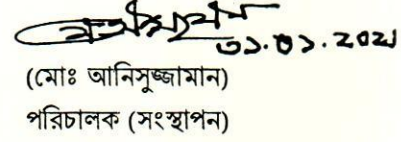 ৩১.০১.2021
(মোঃ আনিসুজ্জামান)
পরিচালক (সংস্থাপন)